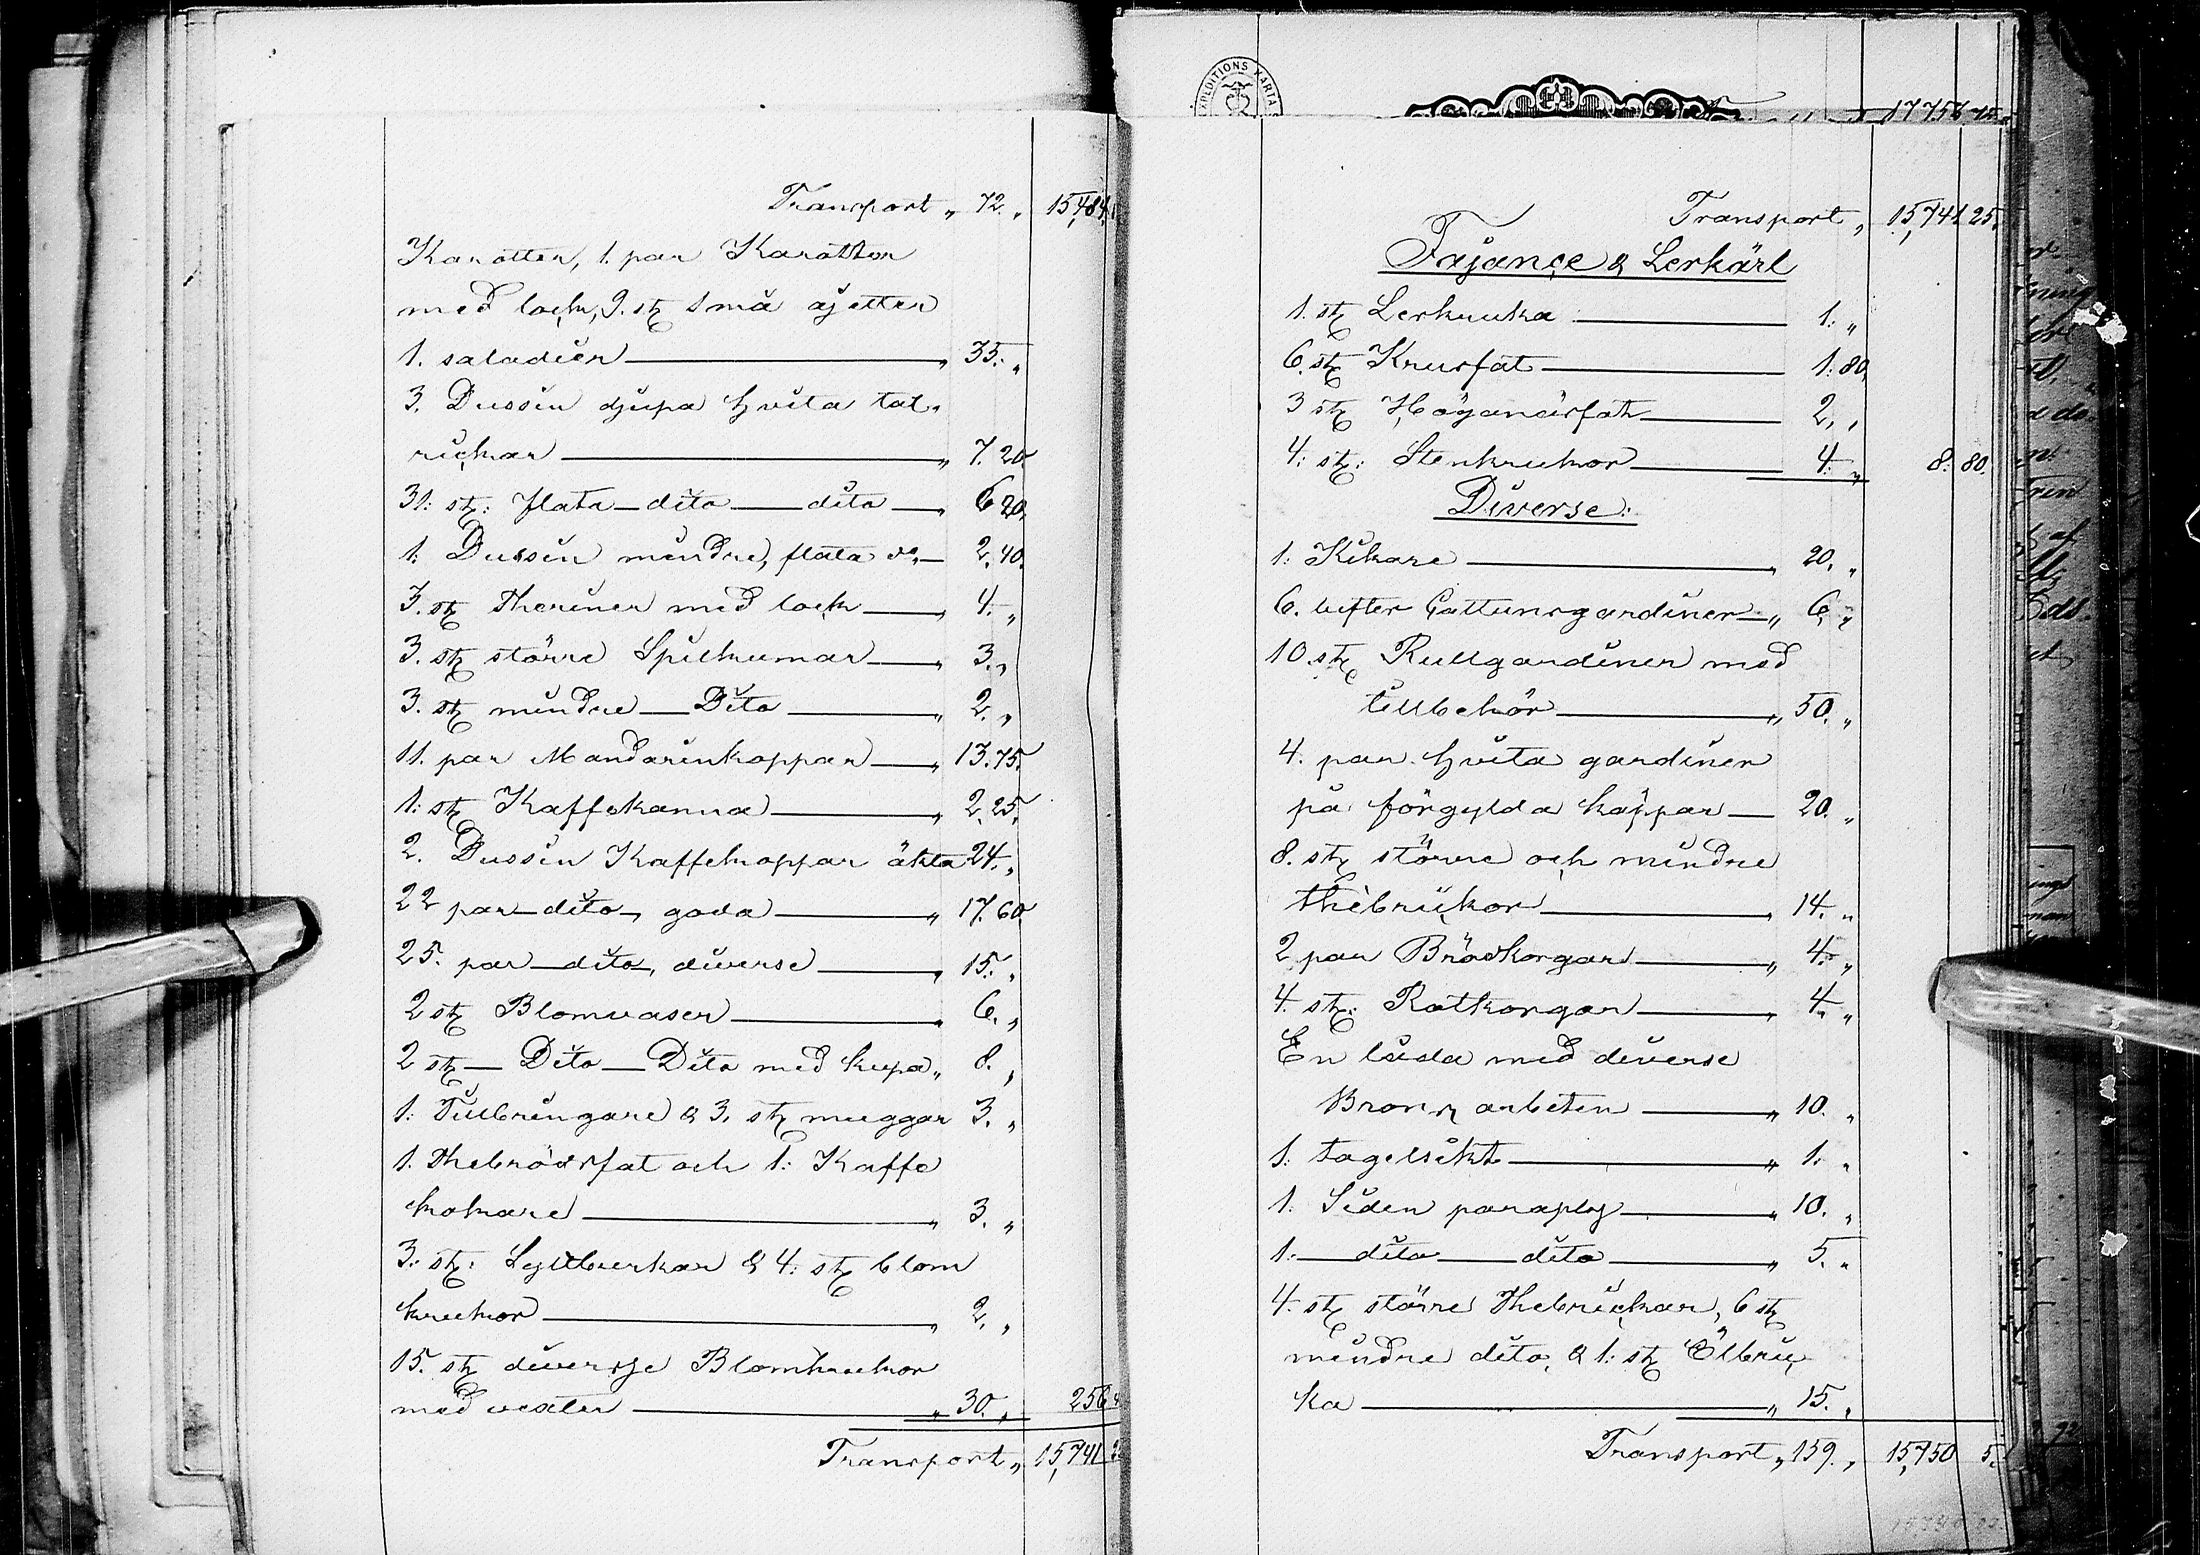 Transport „ 72. „ 15,484.
Karotter, 1. par Karotter
med lock, 9. st små ajetter
1. saladier „ 35. „
3. Dussin djupa hvita tal-
rickar „ 7. 20.
31: st: flata dito dito „ 6 20.
1. Dussin mindre, flata do „ 2. 40.
3. st Theriner med lock „ 4. „
3. st större Spilkumar „ 3. „
3. st mindre Dito „ 2. „
11. par Mandarinkoppar „ 13. 75.
1: st Kaffekanna „ 2. 25.
2. Dussin Kaffekoppar äkta 24. „
22 par dito, goda „ 17. 60
25. par dito, diverse „ 15. „
2 st Blomvaser „ 6. „
2 st Dito Dito med kupa „ 8. „
1: Tillbringare & 3. st muggar 3. „
1. Thebrödsfat och 1: Kaffe
kokare „ 3. „
3: st: Syltburkar & 4: st blom
krukor „ 2. „
15. st diverse Blomkrukor
med vexter „ 30. „ 256
Transport „ 15,741
EXPEDITIONS KARTA
17756 75
Transport „ 15,741 25.
Fajançe & Lerkärl
1. st Lerkruka 1: „
6. st Krusfat 1: 80.
3 st Höganäsfat 2. „
4: st: Stenkrukor 4: „ 8: 80.
Diverse:
1: Kikare „ 20. „
6. lufter Cattunsgardiner „ 6. „
10. st Rullgardiner med
tillbehör „ 50. „
4. par hvita gardiner
på förgylda käppar 20. „
8. st större och mindre
thebrickor „ 14. „
2 par Brödkorgar „ 4. „
4. st: Rotkorgar „ 4. „
En låda med diverse
Bronz arbeten „ 10. „
1: tagelsikt „ 1. „
1. Siden paraply „ 10. „
1: dito dito „ 5. „
4. st större Thebrickor, 6 st
mindre dito, & 1: st Ölbric
ka „ 15. „
Transport „ 159. „ 15,750 5.